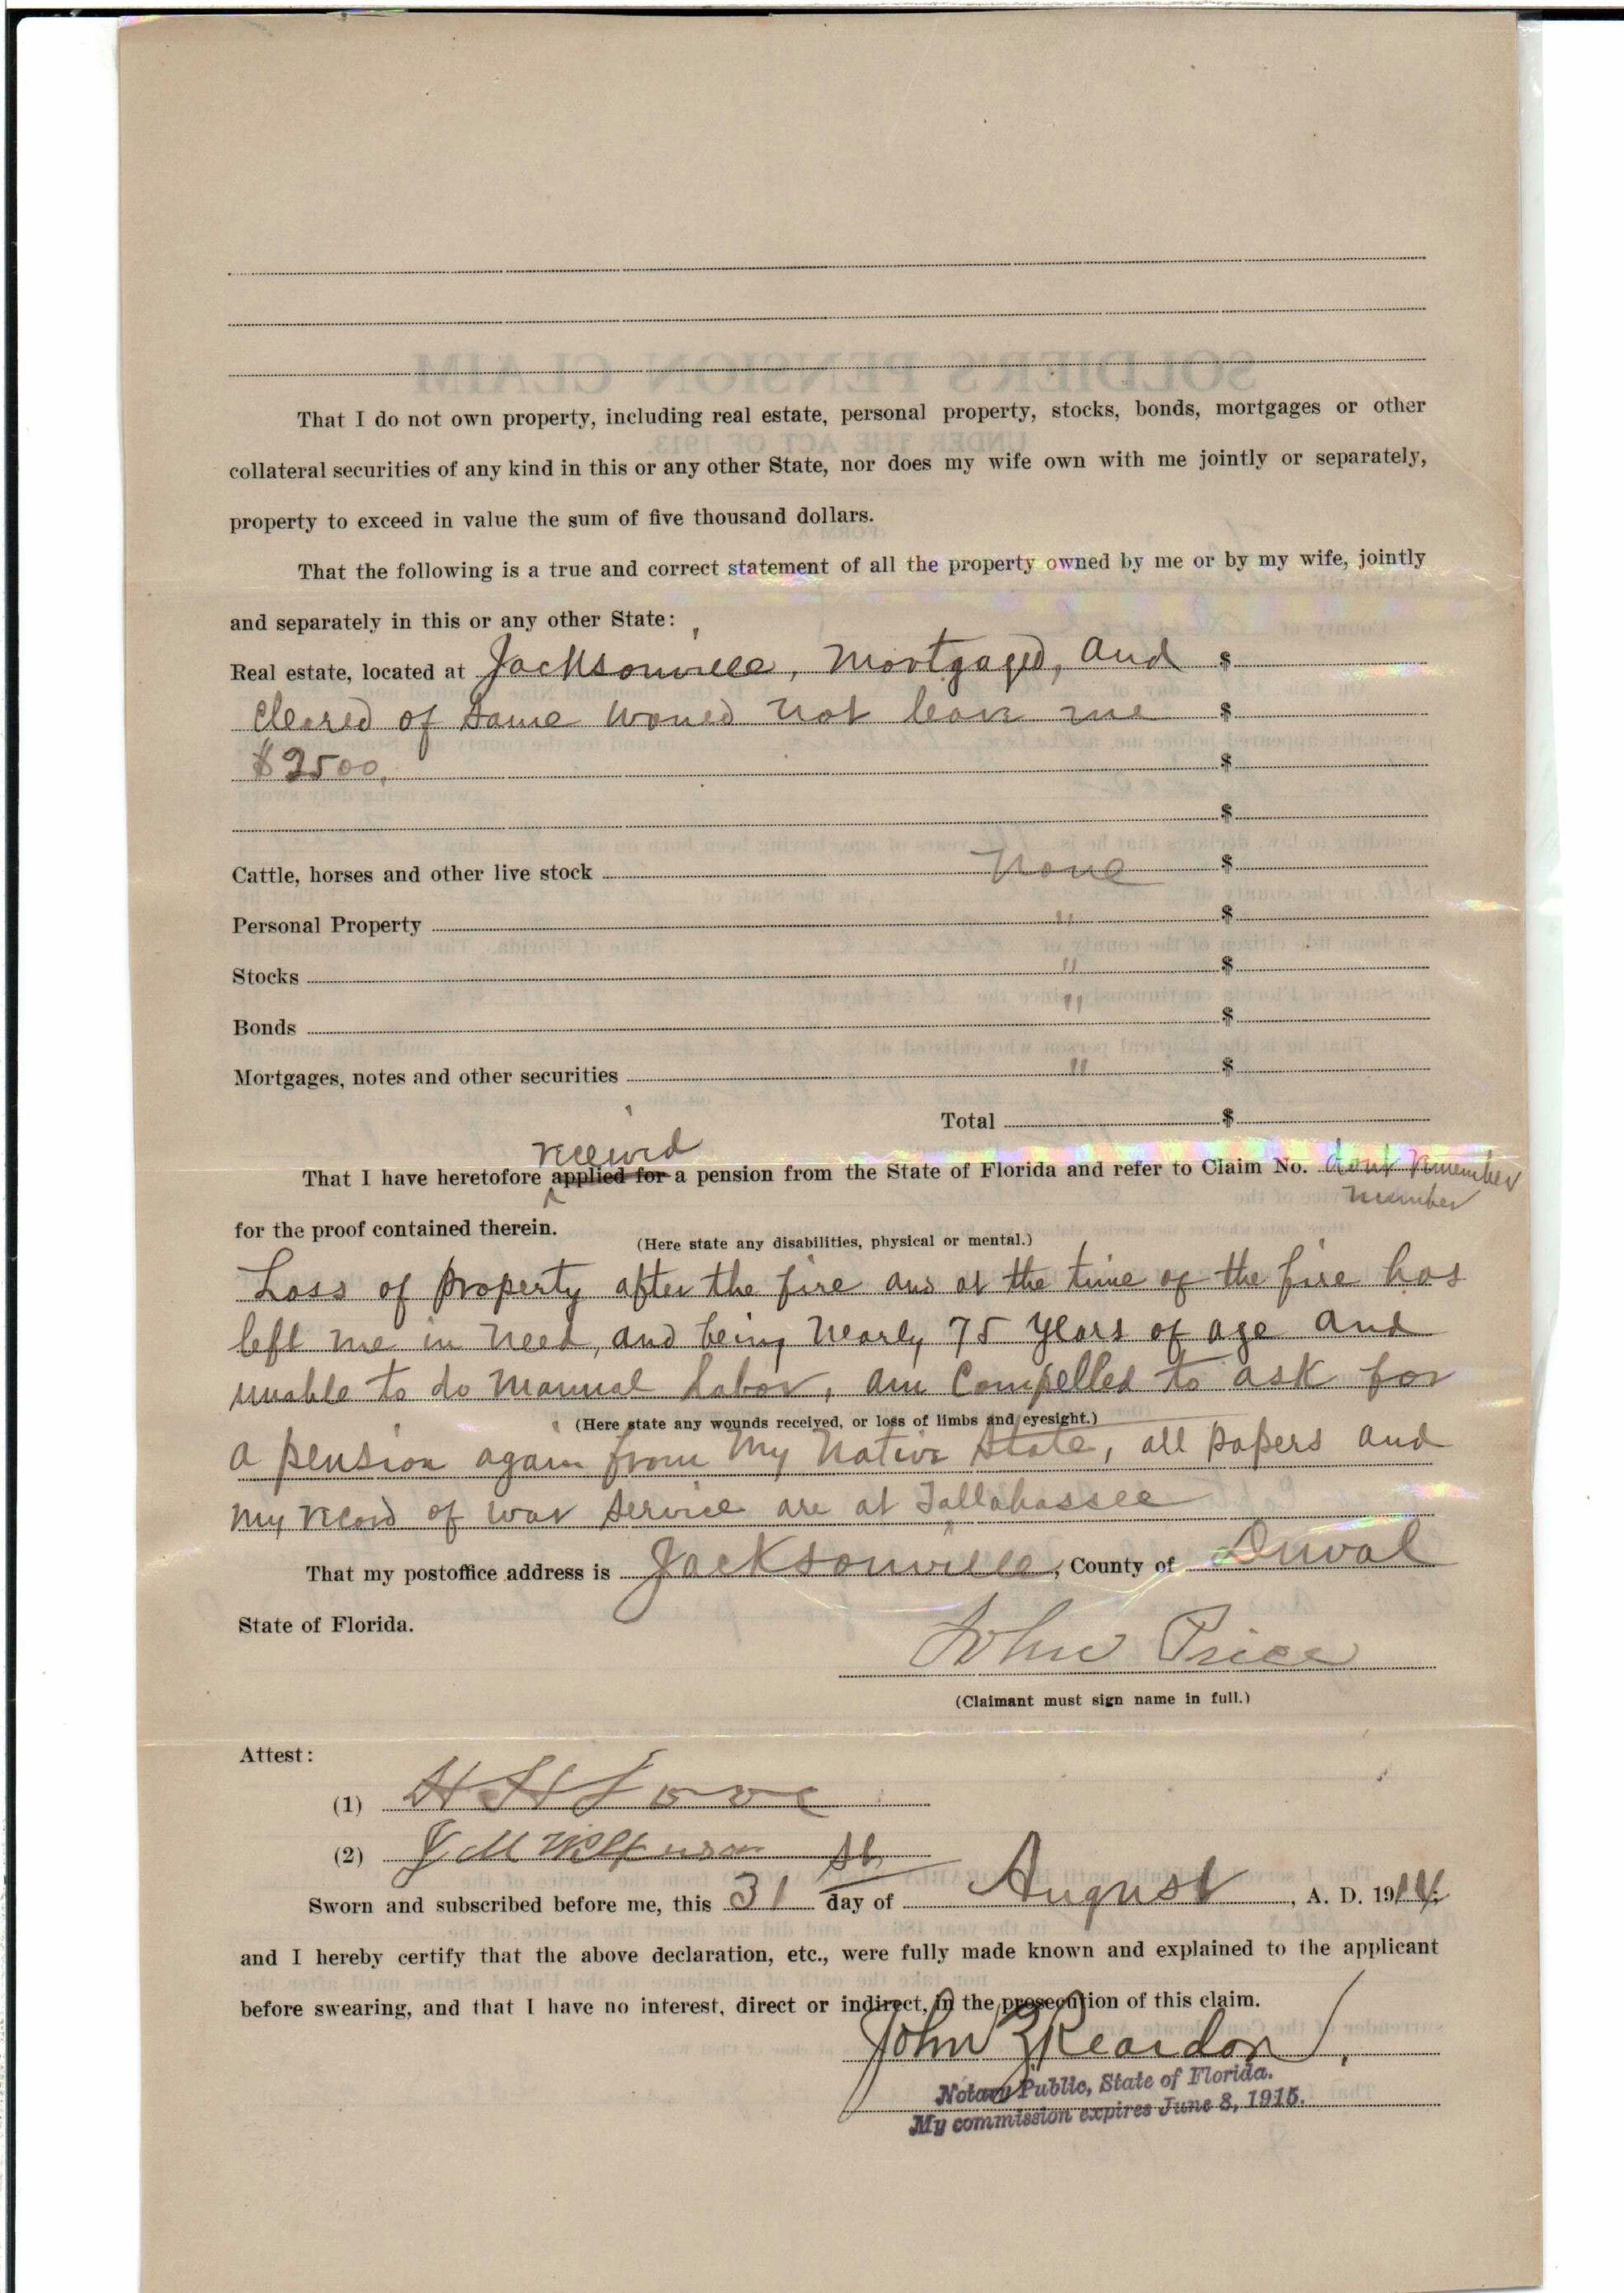 That I do not own property, including real estate, personal property, stocks, bonds, mortgages or other
collateral securities of any kind in this or any other State, nor does my wife own with me jointly or separately,
property to exceed in value the sum of five thousand dollars.
That the following is a true and correct statement of all the property owned by me or by my wife, jointly
and separately in this or any other State:
Real estate, located at Jacksonville, Mortgaged, and $
Cleared of same would not leave me $
$2500. $
$
Cattle, horses and other live stock None $
Personal Property " $
Stocks " $
Bonds " $
Mortgages, notes and other securities " $
Total $
received
That I have heretofore applied for a pension from the State of Florida and refer to Claim No. dont remember
number
for the proof contained therein.
(Here state any disabilities, physical or mental.)
Loss of property after the fire and at the time of the fire has
left me in need, and being nearly 75 years of age and
unable to do manual labor, am compelled to ask for
(Here state any wounds received, or loss of limbs and eyesight.)
a pension again from my native state, all papers and
my record of war service are at Tallahassee
That my postoffice address is Jacksonville, County of Duval
State of Florida.
John Price
(Claimant must sign name in full.)
Attest:
(1) H H Love
(2) J M
Sworn and subscribed before me, this 31 st day of August, A. D. 1914.
and I hereby certify that the above declaration, etc., were fully made known and explained to the applicant
before swearing, and that I have no interest, direct or indirect, in the prosecution of this claim.
John Reardon
Notary Public, State of Florida.
My commission expires June 8, 1915.